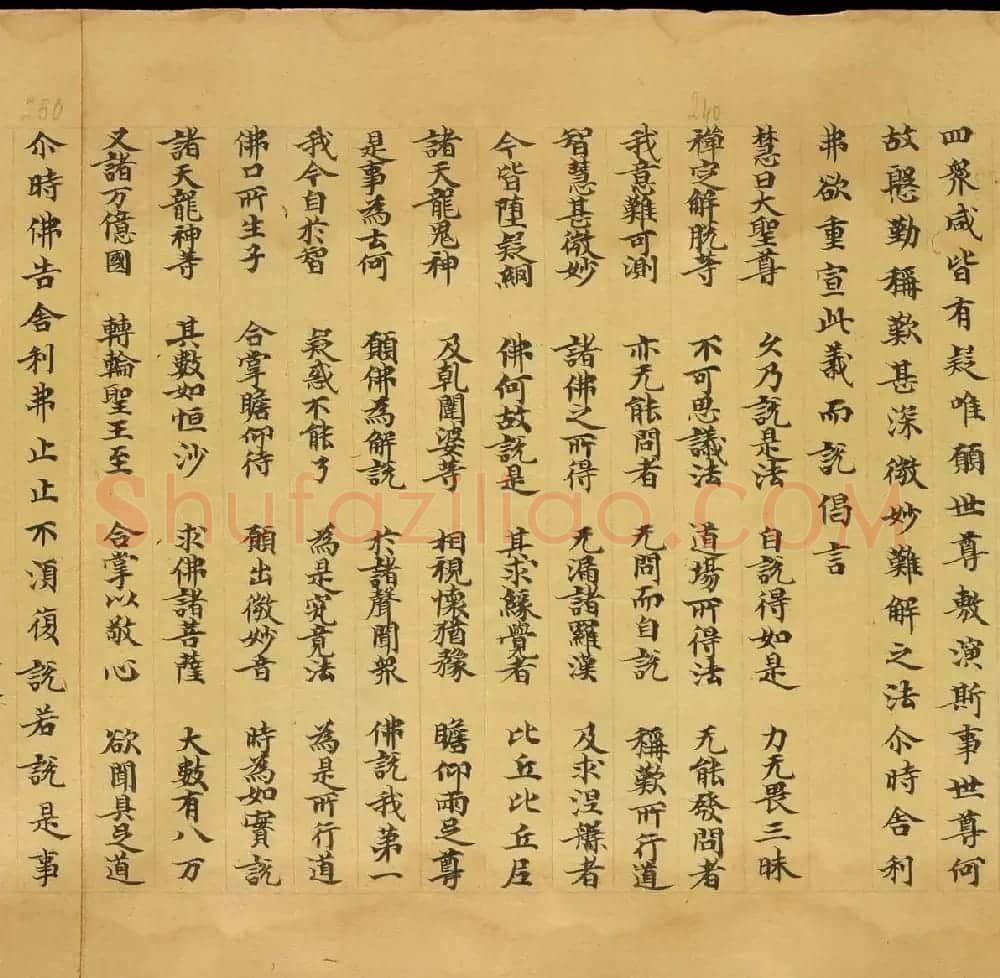 四衆咸皆有疑唯願世尊敷演斯事世尊何
故慇懃稱歎甚深微妙難解之法尒時舍利
弗欲重宣此義而說偈言
慧日大聖尊 久乃說是法 自說得如是 力无畏三昧
禪定解脫等 不可思議法 道場所得法 无能發問者
我意難可測 亦无能問者 无問而自說 稱歎所行道
智慧甚微妙 諸佛之所得 无漏諸羅漢 及求涅槃者
今皆墮疑網 佛何故說是 其求緣覺者 比丘比丘尼
諸天龍鬼神 及乹闥婆等 相視懷猶豫 瞻仰兩足尊
是事為云何 願佛為解說 於諸聲聞衆 佛說我第一
我今自於智 疑惑不能了 為是究竟法 為是所行道
佛口所生子 合掌瞻仰待 願出微妙音 時為如實說
諸天龍神等 其數如恒沙 求佛諸菩薩 大數有八万
又諸万億國 轉輪聖王至 合掌以敬心 欲聞具足道
尒時佛告舍利弗止止不湏復說若說是事
240
250
Shufaziliao.COM